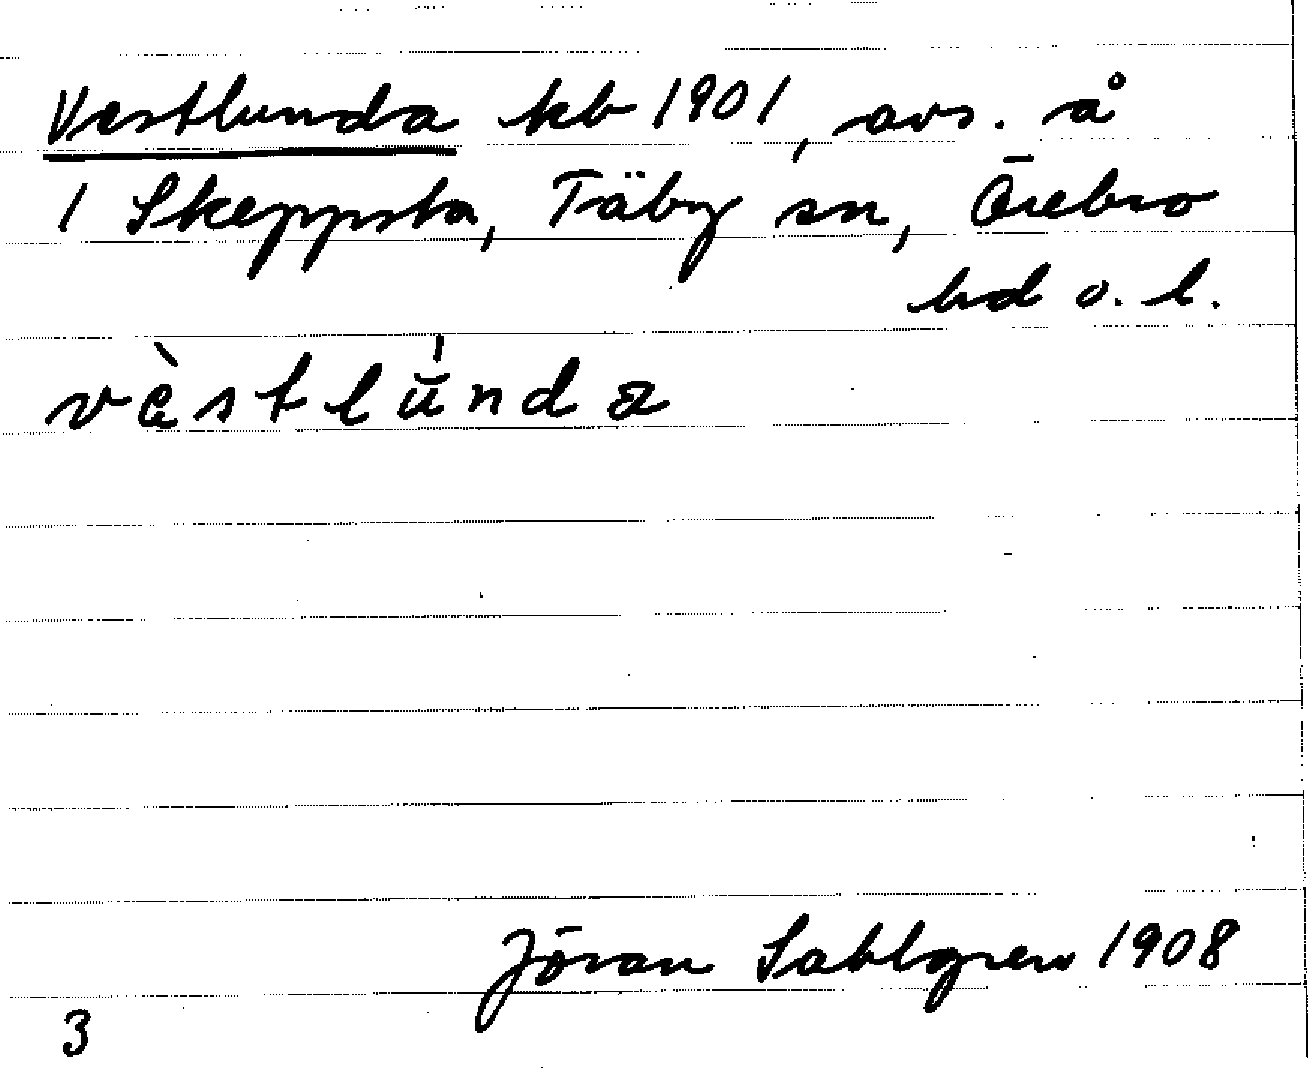 Vestlunda kb 1901, avs. å
1 Skeppsta, Täby sn, Örebro
hd o. l.
vɛ̀stlŭ́nda
Jöran Sahlgren 1908
3